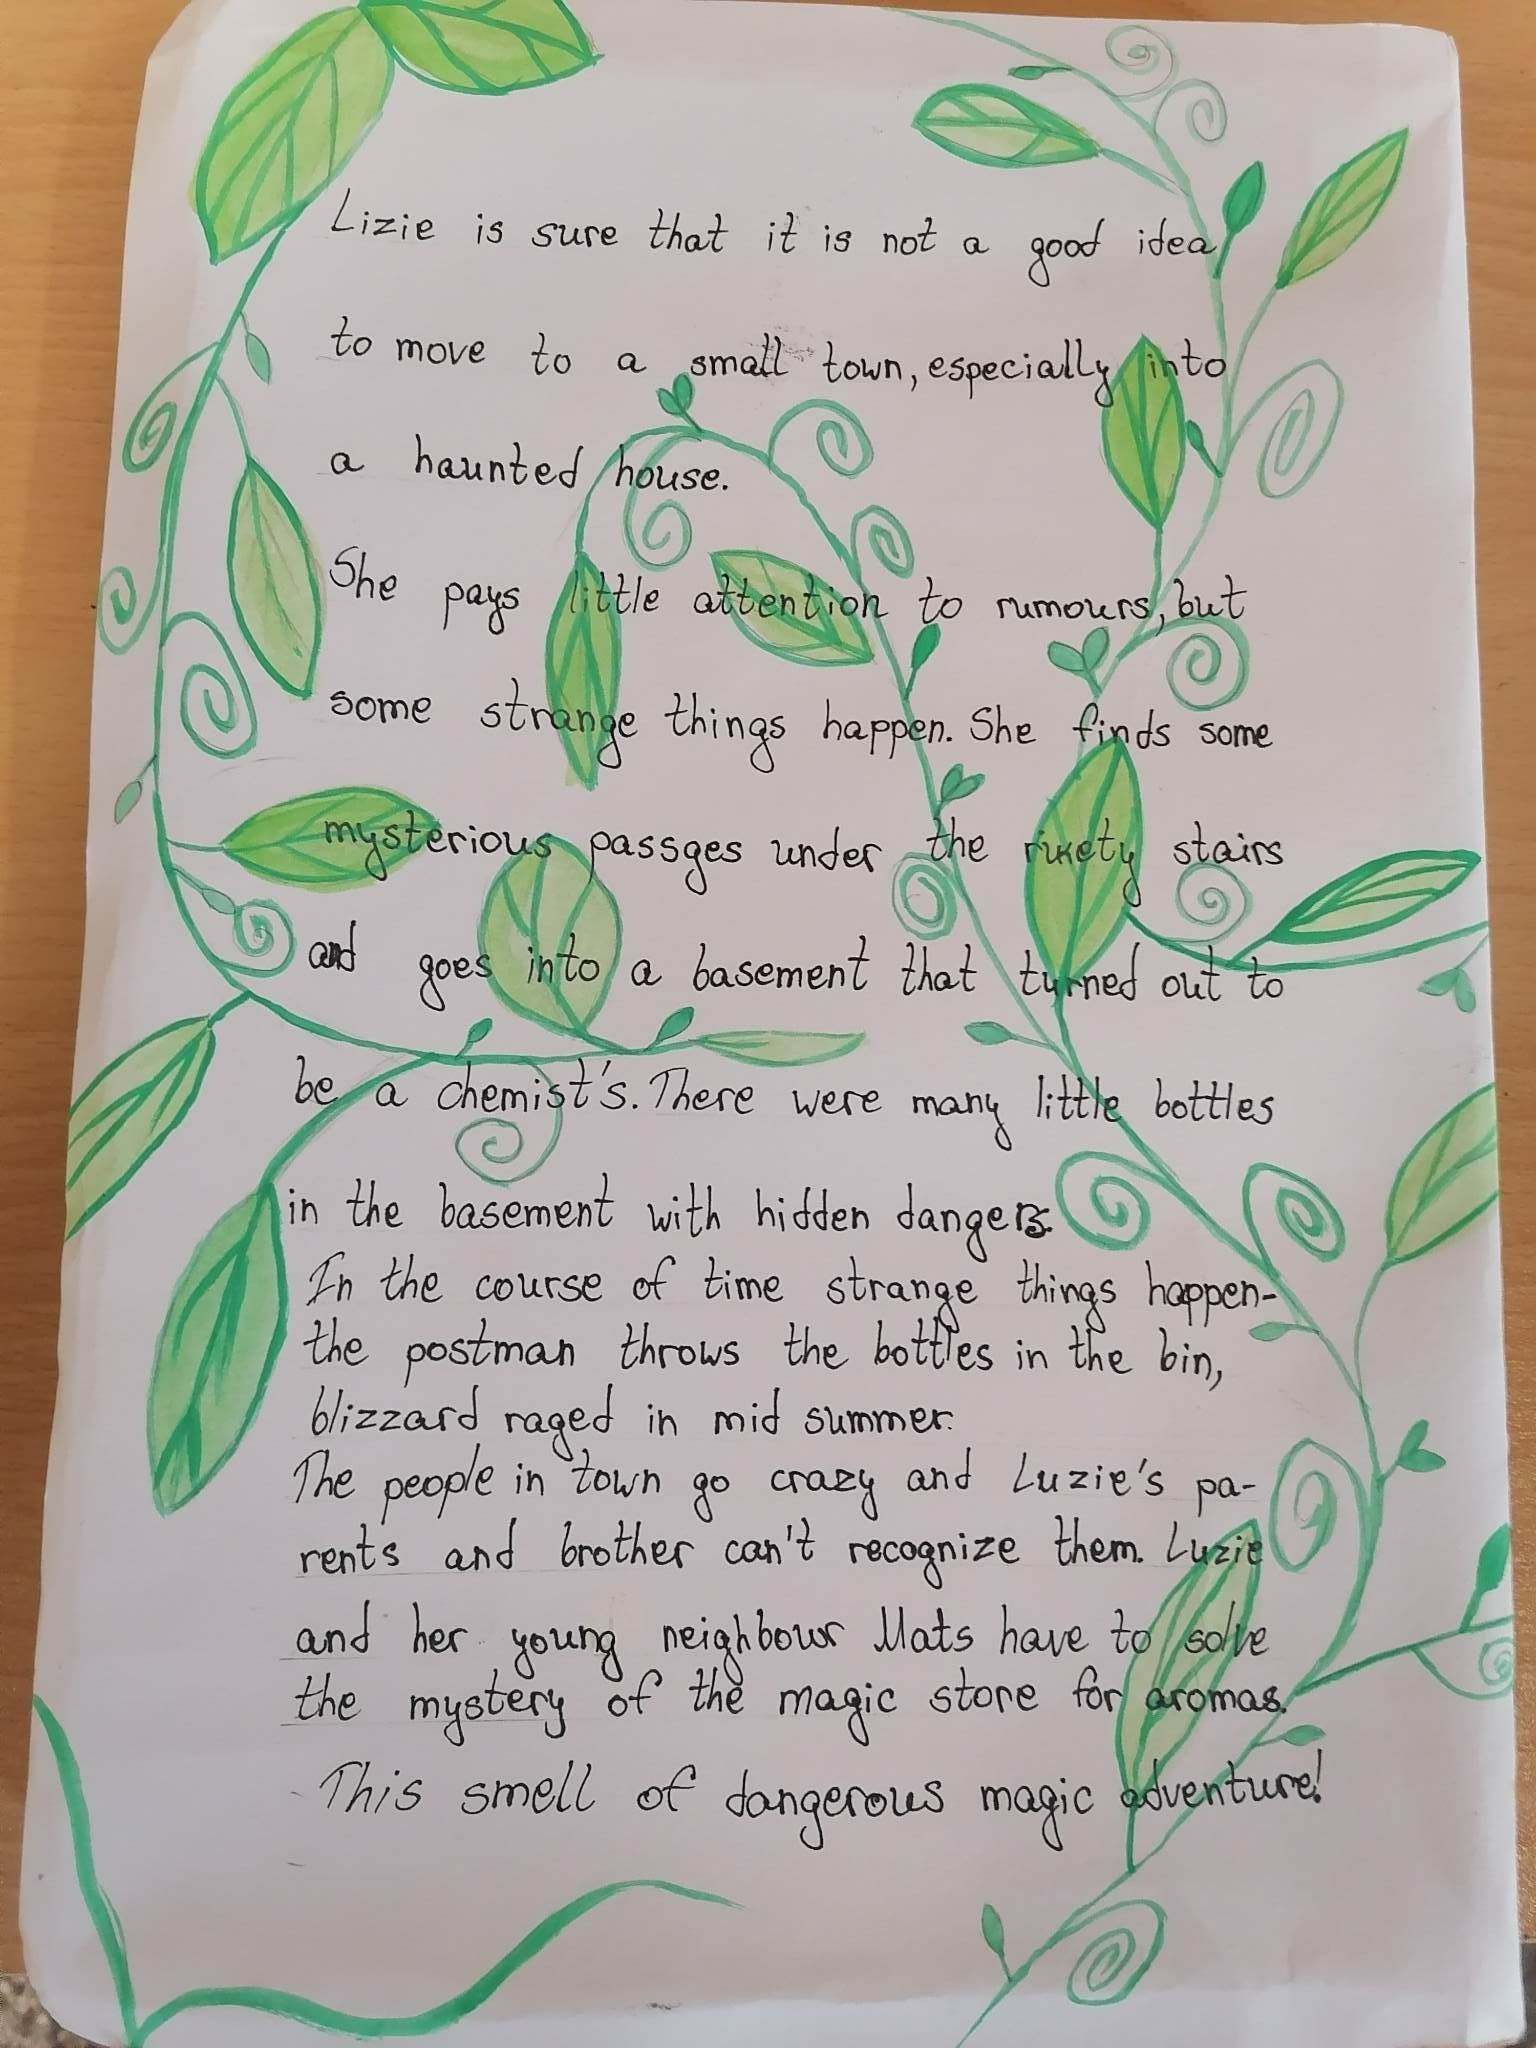 Lizie is sure that it is not a good idea
to move to a small town, especially into
a haunted house.
She pays little attention to rumours, but
some strange things happen. She finds some
mysterious passges under the rikety stairs
and goes into a basement that turned out to
be a chemist's. There were many little bottles
in the basement with hidden dangers.
In the course of time strange things happen-
the postman throws the bottles in the bin,
blizzard raged in mid summer.
The people in town go crazy and Luzie's pa-
rents and brother can't recognize them. Luzie
and her young neighbour Mats have to solve
the mystery of the magic store for aromas.
This smell of dangerous magic adventure!